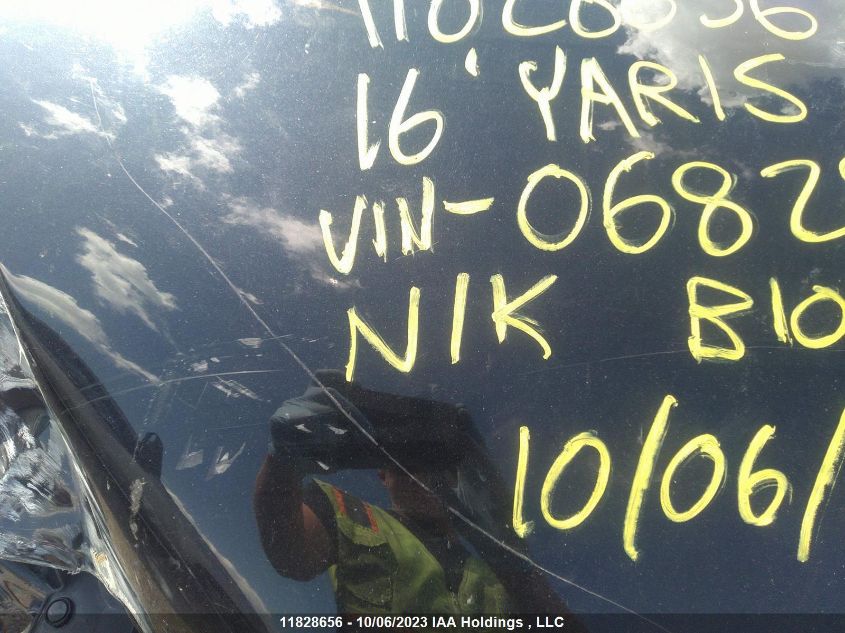 16' YARIS
VIN-0682
NIK B10
10/06/
11828656 - 10/06/2023 IAA Holdings , LLC